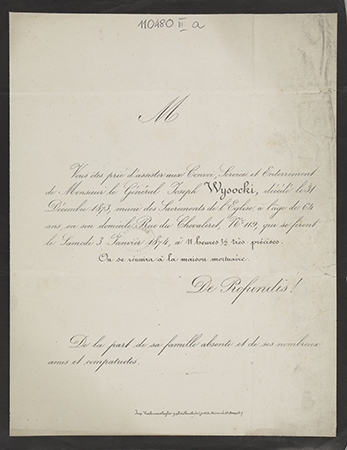 110480 III a
M
Vous êtes prié d'assister aux Convoi, Service et Enterrement
de Monsieur le Général Joseph Wysocki, décédé le 31
Décembre 1873, muni des Sacrements de l'Église, à l'âge de 64
ans, en son domicile Rue du Chevaleret, No 119, qui se feront
le Samedi 3 Janvier 1874, à 11 heures ½ très précises.
On se réunira à la maison mortuaire.
De Profundis!
De la part de sa famille absente et de ses nombreux
amis et compatriotes.